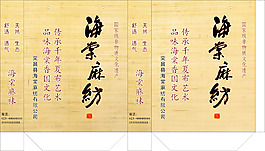 国家级非物质文化遗产
海棠麻纺
传承千年夏布艺术
品味海棠香国文化
荣昌县海棠麻纺有限公司
天然 生态
舒适 透气
海棠麻妹
国家级非物质文化遗产
海棠麻纺
传承千年夏布艺术
品味海棠香国文化
荣昌县海棠麻纺有限公司
天然 生态
舒适 透气
海棠麻妹